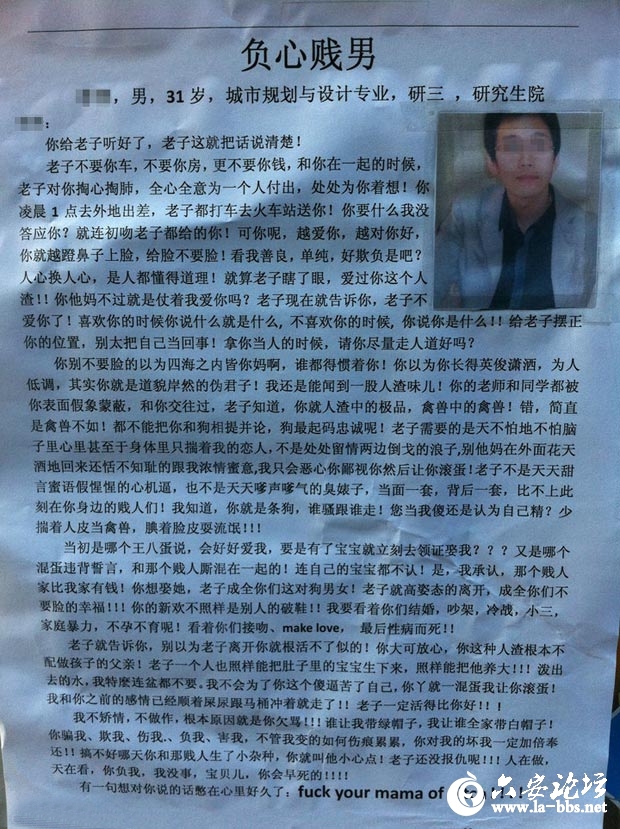 负心贱男
，男，31 岁，城市规划与设计专业，研三 ，研究生院
：
你给老子听好了，老子这就把话说清楚！
老子不要你车，不要你房，更不要你钱，和你在一起的时候，
老子对你掏心掏肺，全心全意为一个人付出，处处为你着想！你
凌晨 1 点去外地出差，老子都打车去火车站送你！你要什么我没
答应你？就连初吻老子都给的你！可你呢，越爱你，越对你好，
你就越蹬鼻子上脸，给脸不要脸！看我善良，单纯，好欺负是吧？
人心换人心，是人都懂得道理！就算老子瞎了眼，爱过你这个人
渣!！你他妈不过就是仗着我爱你吗？老子现在就告诉你，老子不
爱你了！喜欢你的时候你说什么就是什么，不喜欢你的时候，你说你是什么!！给老子摆正
你的位置，别太把自己当回事！拿你当人的时候，请你尽量走人道好吗？
你别不要脸的以为四海之内皆你妈啊，谁都得惯着你！你以为你长得英俊潇洒，为人
低调，其实你就是道貌岸然的伪君子！我还是能闻到一股人渣味儿！你的老师和同学都被
你表面假象蒙蔽，和你交往过，老子知道，你就人渣中的极品，禽兽中的禽兽！错，简直
是禽兽不如！都不能把你和狗相提并论，狗最起码忠诚呢！老子需要的是天不怕地不怕脑
子里心里甚至于身体里只揣着我的恋人，不是处处留情两边倒戈的浪子，别他妈在外面花天
酒地回来还恬不知耻的跟我浓情蜜意，我只会恶心你鄙视你然后让你滚蛋！老子不是天天甜
言蜜语假惺惺的心机逼，也不是天天嗲声嗲气的臭婊子，当面一套，背后一套，比不上此
刻在你身边的贱人们！我知道，你就是条狗，谁骚跟谁走！您当我傻还是认为自己精？少
揣着人皮当禽兽，腆着脸皮耍流氓!!！
当初是哪个王八蛋说，会好好爱我，要是有了宝宝就立刻去领证娶我？？？又是哪个
混蛋违背誓言，和那个贱人厮混在一起的！连自己的宝宝都不认！是，我承认，那个贱人
家比我家有钱！你想娶她，老子成全你们这对狗男女！老子就高姿态的离开，成全你们不
要脸的幸福!!！你的新欢不照样是别人的破鞋!！我要看着你们结婚，吵架，冷战，小三，
家庭暴力，不孕不育呢！看着你们接吻、make love， 最后性病而死!！
老子就告诉你，别以为老子离开你就根活不了似的！你大可放心，你这种人渣根本不
配做孩子的父亲！老子一个人也照样能把肚子里的宝宝生下来，照样能把他养大!!！泼出
去的水，我特麽连盆都不要。我不会为了你这个傻逼苦了自己，你丫就一混蛋我让你滚蛋！
我和你之前的感情已经顺着屎尿跟马桶冲着就走了!！老子一定活得比你好!!！
我不矫情，不做作，根本原因就是你欠骂!!！谁让我带绿帽子，我让谁全家带白帽子！
你骗我、欺我、伤我、、负我、害我，不管我变的如何伤痕累累，你对我的坏我一定加倍奉
还!！搞不好哪天你和那贱人生了小杂种，你就叫他小心点！老子还没报仇呢!!！人在做，
天在看，你负我，我没事，宝贝儿，你会早死的!!!！
有一句想对你说的话憋在心里好久了：fuck your mama of
六安论坛
www.la-bbs.net